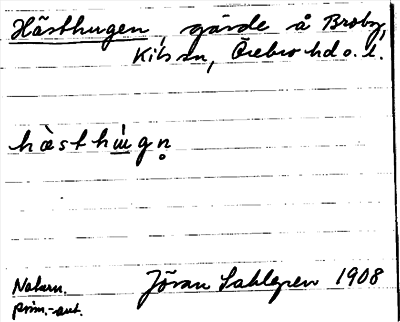 Hästhugen, gärde å Broby,
Kils sn, Örebro hd o. l.
hàsthú̲gn̥
Naturn.
prim.-ant.
Jöran Sahlgren 1908